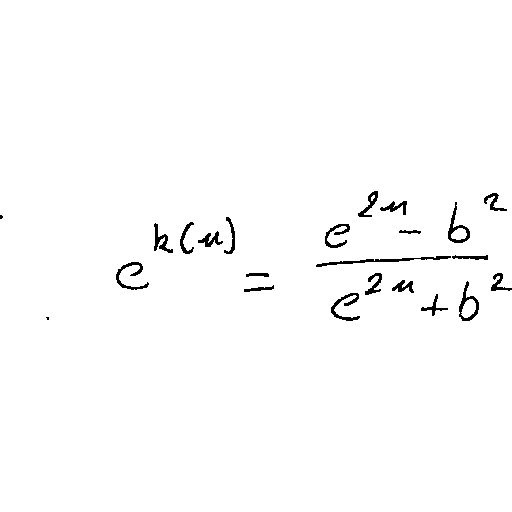 e^{k(u)} = \frac{e^{2u} - b^2}{e^{2u} + b^2}